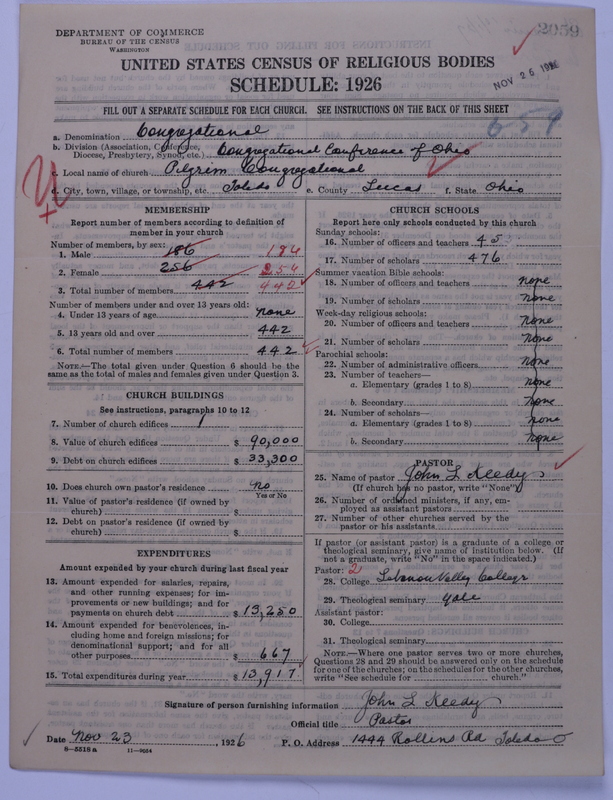 DEPARTMENT OF COMMERCE
BUREAU OF THE CENSUS
WASHINGTON
2059
UNITED STATES CENSUS OF RELIGIOUS BODIES
SCHEDULE: 1926
NOV 26 1926
FILL OUT A SEPARATE SCHEDULE FOR EACH CHURCH. SEE INSTRUCTIONS ON THE BACK OF THIS SHEET
659
a. Denomination Congregational
b. Division (Association, Conference, Diocese, Presbytery, Synod, etc.) Congregational Conference of Ohio
c. Local name of church Pilgrim Congregational
d. City, town, village, or township, etc. Toledo e. County Lucas f. State Ohio
MEMBERSHIP
Report number of members according to definition of
member in your church
Number of members, by sex:
1. Male 186 186
2. Female 256 256
3. Total number of members 442 442
Number of members under and over 13 years old:
4. Under 13 years of age None
5. 13 years old and over 442
6. Total number of members 442
NOTE.—The total given under Question 6 should be
same as the total of males and females given under Question 3.
CHURCH BUILDINGS
See instructions, paragraphs 10 to 12
7. Number of church edifices 1
8. Value of church edifices $ 90,000
9. Debt on church edifices $ 33,300
10. Does church own pastor's residence no
Yes or No
11. Value of pastor's residence (if owned by
church) $
12. Debt on pastor's residence (if owned by
church) $
EXPENDITURES
Amount expended by your church during last fiscal year
13. Amount expended for salaries, repairs,
and other running expenses; for im-
provements or new buildings; and for
payments on church debt $ 13,250
14. Amount expended for benevolences, in-
cluding home and foreign missions; for
denominational support; and for all
other purposes $ 667
15. Total expenditures during year $ 13,917
CHURCH SCHOOLS
Report here only schools conducted by this church
Sunday schools:
16. Number of officers and teachers 45
17. Number of scholars 476
Summer vacation Bible schools:
18. Number of officers and teachers none
19. Number of scholars none
Week-day religious schools:
20. Number of officers and teachers none
21. Number of scholars none
Parochial schools:
22. Number of administrative officers none
23. Number of teachers—
a. Elementary (grades 1 to 8) none
b. Secondary none
24. Number of scholars—
a. Elementary (grades 1 to 8) none
b. Secondary none
PASTOR
25. Name of pastor John L Keedy
(If church has no pastor, write "None")
26. Number of ordained ministers, if any, em-
ployed as assistant pastors
27. Number of other churches served by the
pastor or his assistants
If pastor (or assistant pastor) is a graduate of a college or
theological seminary, give name of institution below. (If
not a graduate, write "No" in the space indicated.)
Pastor: 2
28. College Lebanon Valley College
29. Theological seminary Yale
Assistant pastor:
30. College
31. Theological seminary
NOTE.—Where one pastor serves two or more churches,
Questions 28 and 29 should be answered only on the schedule
for one of the churches; on the schedules for the other churches,
write "See schedule for church."
Signature of person furnishing information John L Keedy
Official title Pastor
Date Nov 23, 1926 P. O. Address 1444 Rollins Rd Toledo O
8-5518 a 11-9054